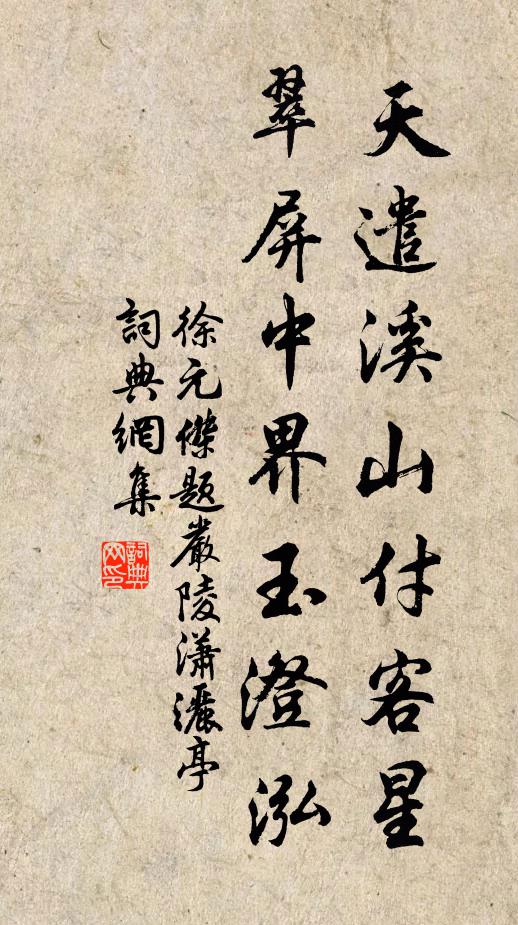 天遣溪山付客星
翠屏中界玉澄泓
徐元傑題嚴陵瀟灑亭
詞典網集
詞典网印